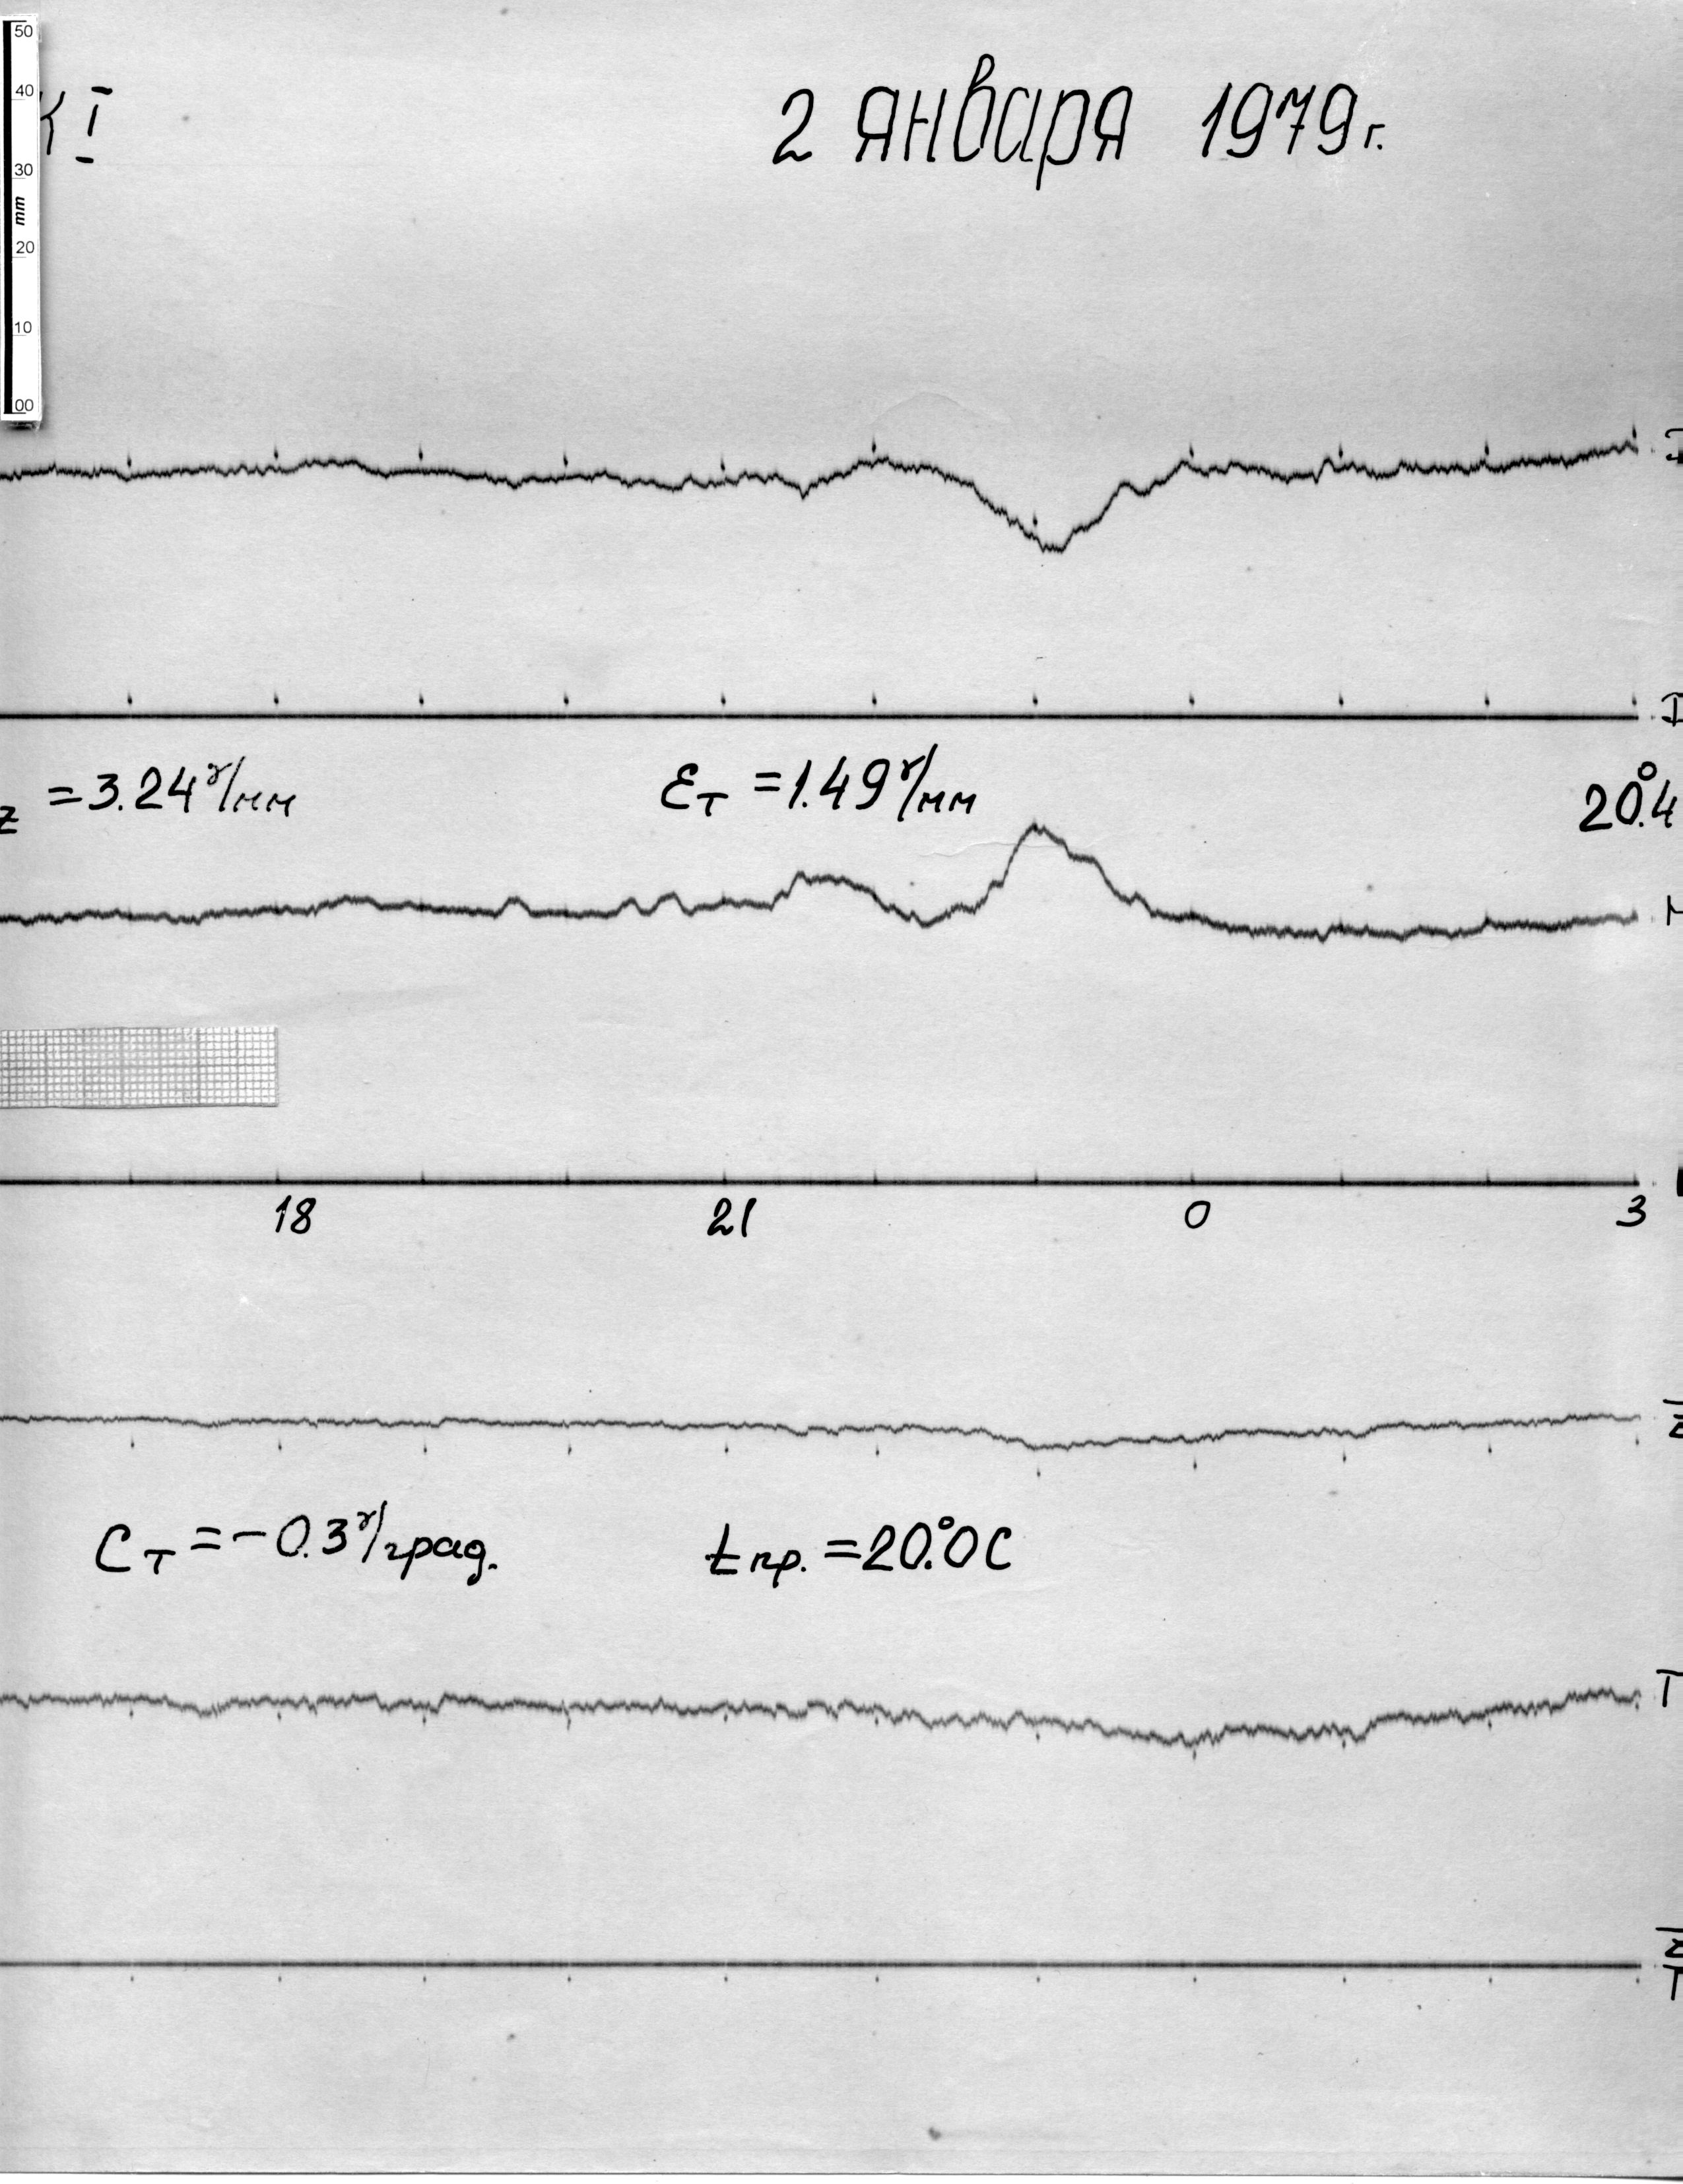 50
40
30
mm
20
10
00
K I
2 января 1979 г.
D
D
z = 3.24 γ/мм
εт = 1.49 γ/мм
20°.4
H
18
21
0
3
Z
Cт = -0.3 γ/град.
tпр. = 20°.0 C
T
Z
T